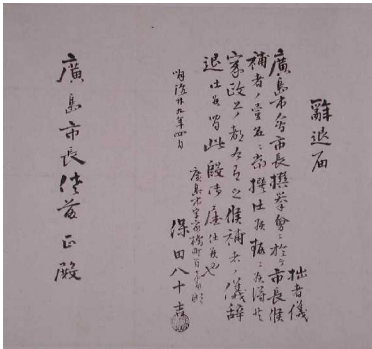 辭退届
拙者儀
廣島市會市長撰挙會ニ於テ市長候
補者ノ壹名ニ當撰仕候処
家政上ノ都合有之候補者ノ儀辭
退仕候間此段御届仕候也
明治廿九年四月
廣島市
保田八十吉
廣島市長伴資正殿